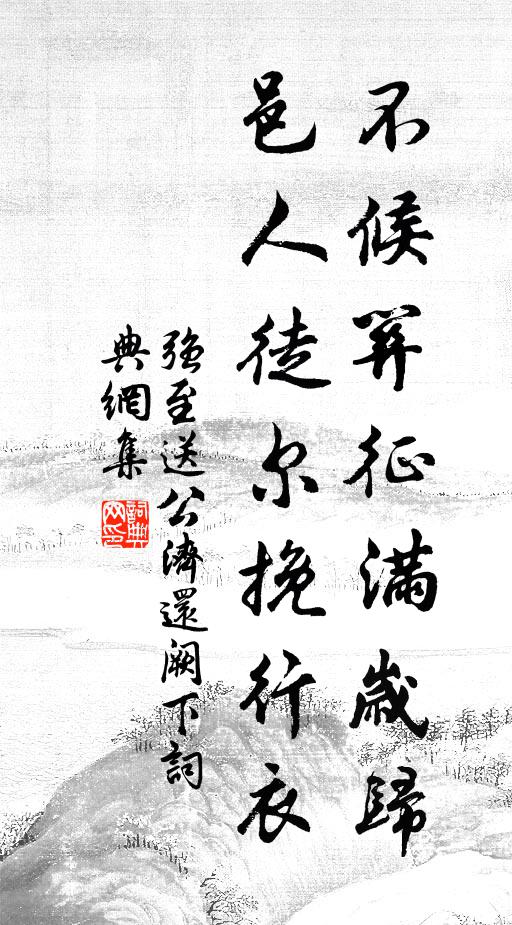 不候筭征滿歲歸
邑人徒尔挽行衣
強至送公濟還阙下詞
典網集
詞典
网印